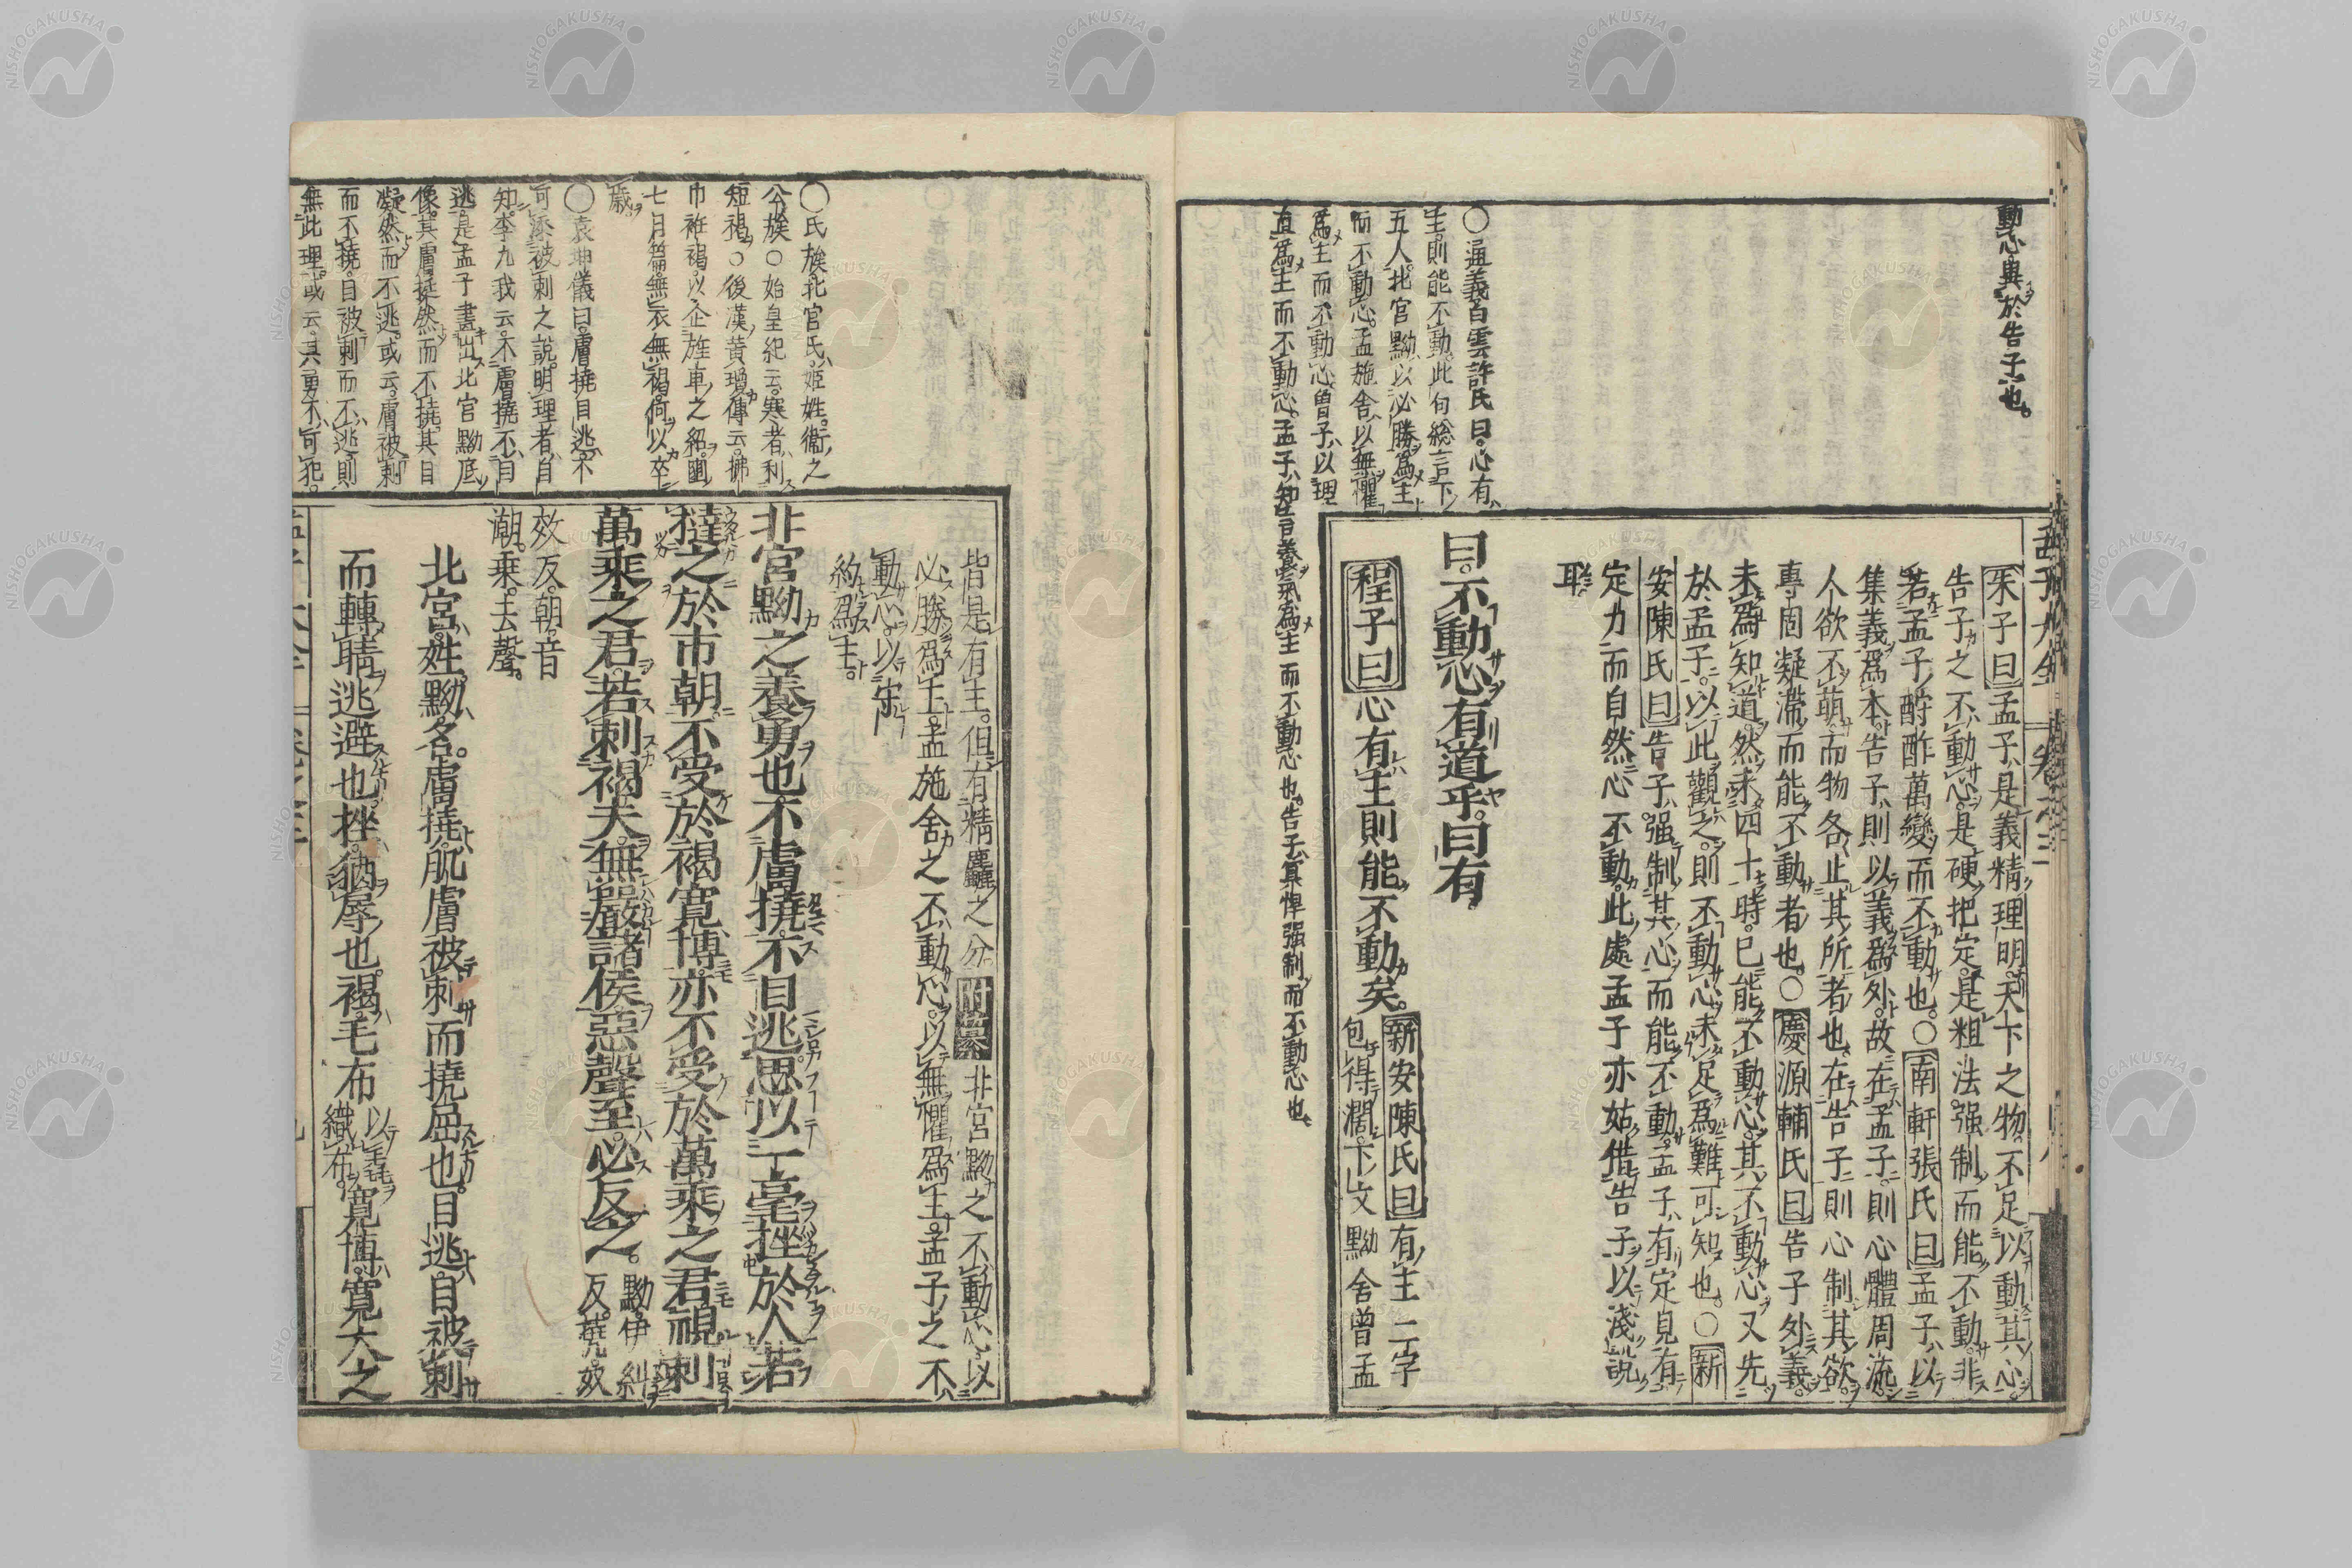 動心異於告子也。
○通義白雲許氏曰。心有
主。則能不動。此句総言下
五人。北宮黝以必勝爲主
而不動心。孟施舍以無懼
爲主而不動心。曾子以理
直爲主而不動心。孟子知言養氣爲主而不動心也。告子冥悍强制而不動心也。
孟子大全 卷之三
朱子曰孟子是義精理明。天下之物不足以動其心。
告子之不動心。是硬把定。是粗法。强制而能不動。非
若孟子酬酢萬變而不動也。○南軒張氏曰孟子以
集義爲本。告子則以義爲外。故在孟子則心體周流。
人欲不萌。而物各止其所者也。在告子則心制其欲。
專固凝滯而能不動者也。○慶源輔氏曰告子外義。
未爲知道。然未四十時。已能不動心。其不動心又先
於孟子。以此觀之。則不動心未足爲難可知也。○新
安陳氏曰告子强制其心而能不動。孟子有定見有
定力而自然心不動。此處孟子亦姑借告子以淺說
耳
曰。不動心有道乎。曰有。
程子曰心有主則能不動矣。新安陳氏曰有主二字
包得濶。下文黝舍曾孟
皆是有主。但有精麤之分附纂非宮黝之不動心以
必勝爲主。孟施舍之不動心。以無懼爲主。孟子之不
動心。以守
約爲主。
非宮黝之養勇也不膚撓。不目逃思以一毫挫於人若
撻之於市朝。不受於褐寬博。亦不受於萬乘之君。視刺
萬乘之君。若刺褐夫。無嚴諸侯。惡聲至。必反之。黝伊糾
反。撓。奴
效反。朝。音
潮。乘。去聲。
北宮。姓。黝。名。膚撓。肌膚被刺而撓屈也。目逃。目被刺
而轉睛逃避也。挫。猶辱也。褐。毛布以毳毛
織布。寬博。寬大之
○氏族。北宮氏。姬姓。衞之
公族○始皇紀云。寒者利
短褐。○後漢黄瓊傳云。拂
巾袵褐。以企旌車之招。豳
七月篇。無衣無褐何以卒
歲。
○袁坤儀曰。膚撓目逃不
可添被刺之說。明理者自
知。李九我云。不膚撓不目
逃。是孟子畫出北宮黝底
像。其膚挺然而不撓。其目
凝然而不逃。或云。膚被刺
而不撓。目被刺而不逃則
無此理。或云。其勇不可犯。